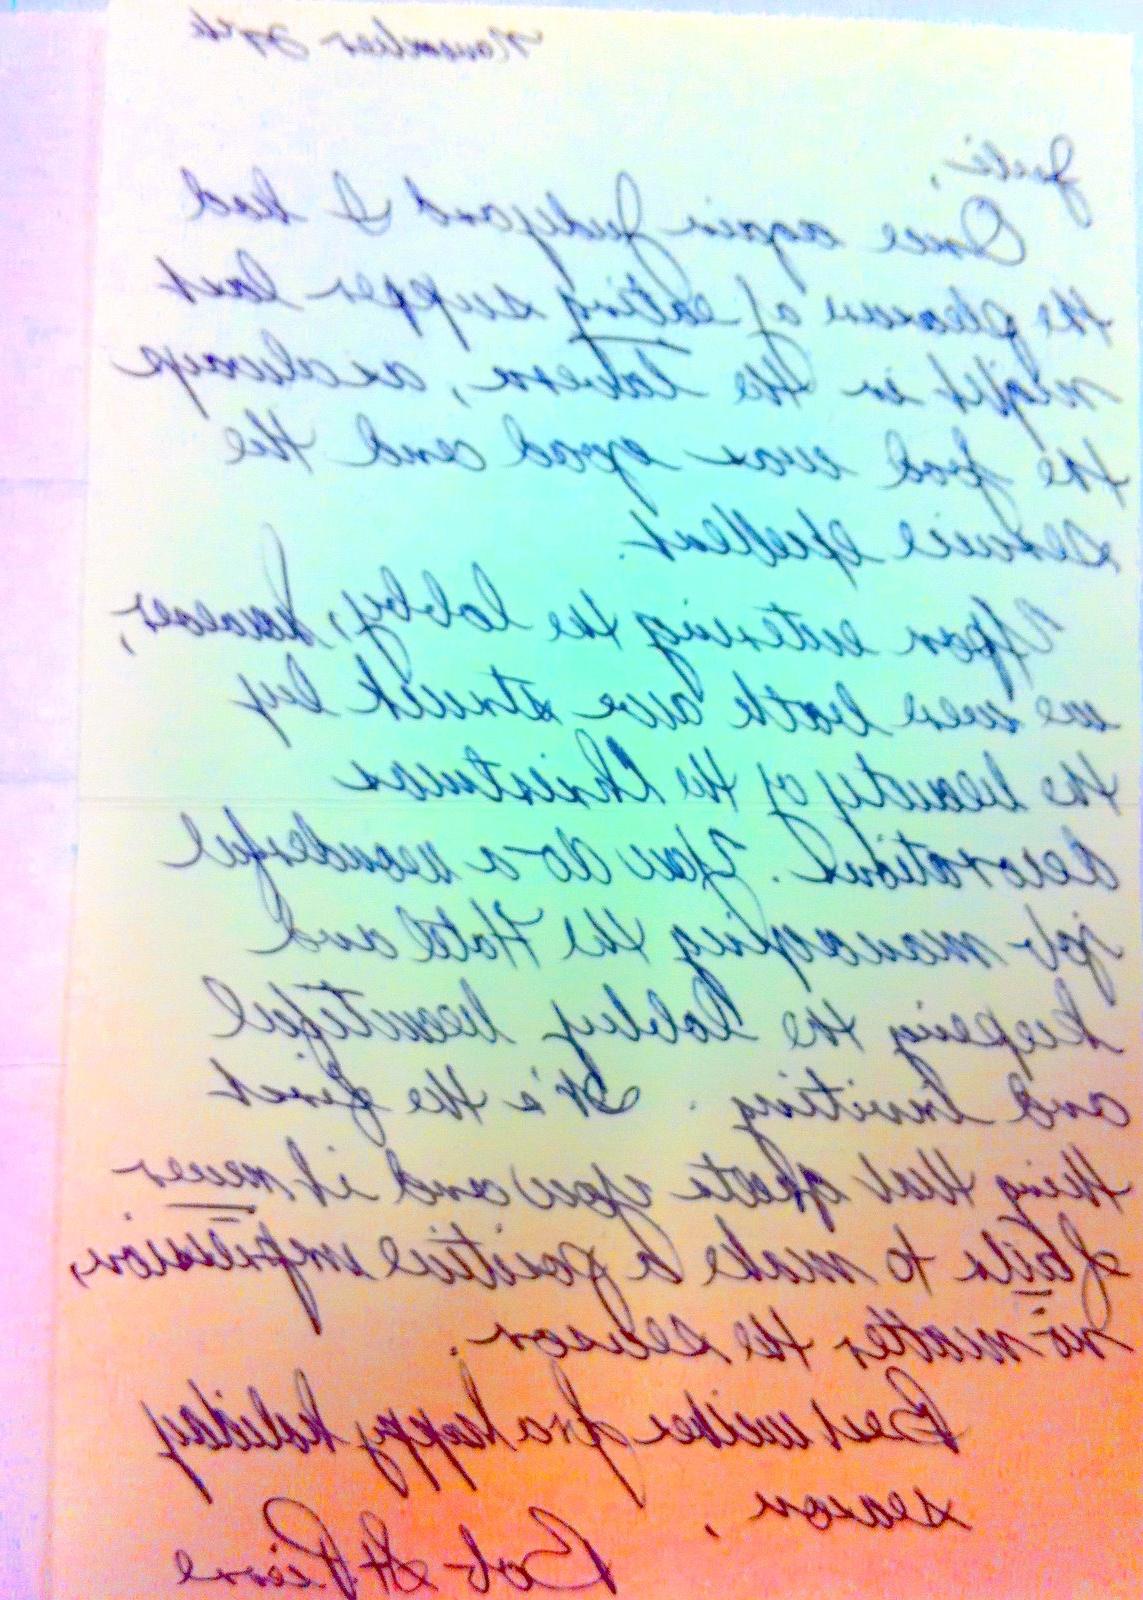 November 29th
Juli,
Once again Judy and I had
the pleasure of eating supper last
night in the Tavern, as always
the food was good and the
service excellent.
Upon entering the lobby, however,
we were both awe struck by
the beauty of the Christmas
decorations. You do a wonderful
job managing the Hotel and
keeping the lobby beautiful
and inviting. It's the first
thing that greets you and it never
fails to make a positive impression,
no matter the season.
Best wishes for a happy holiday
season.
Bob St Pierre